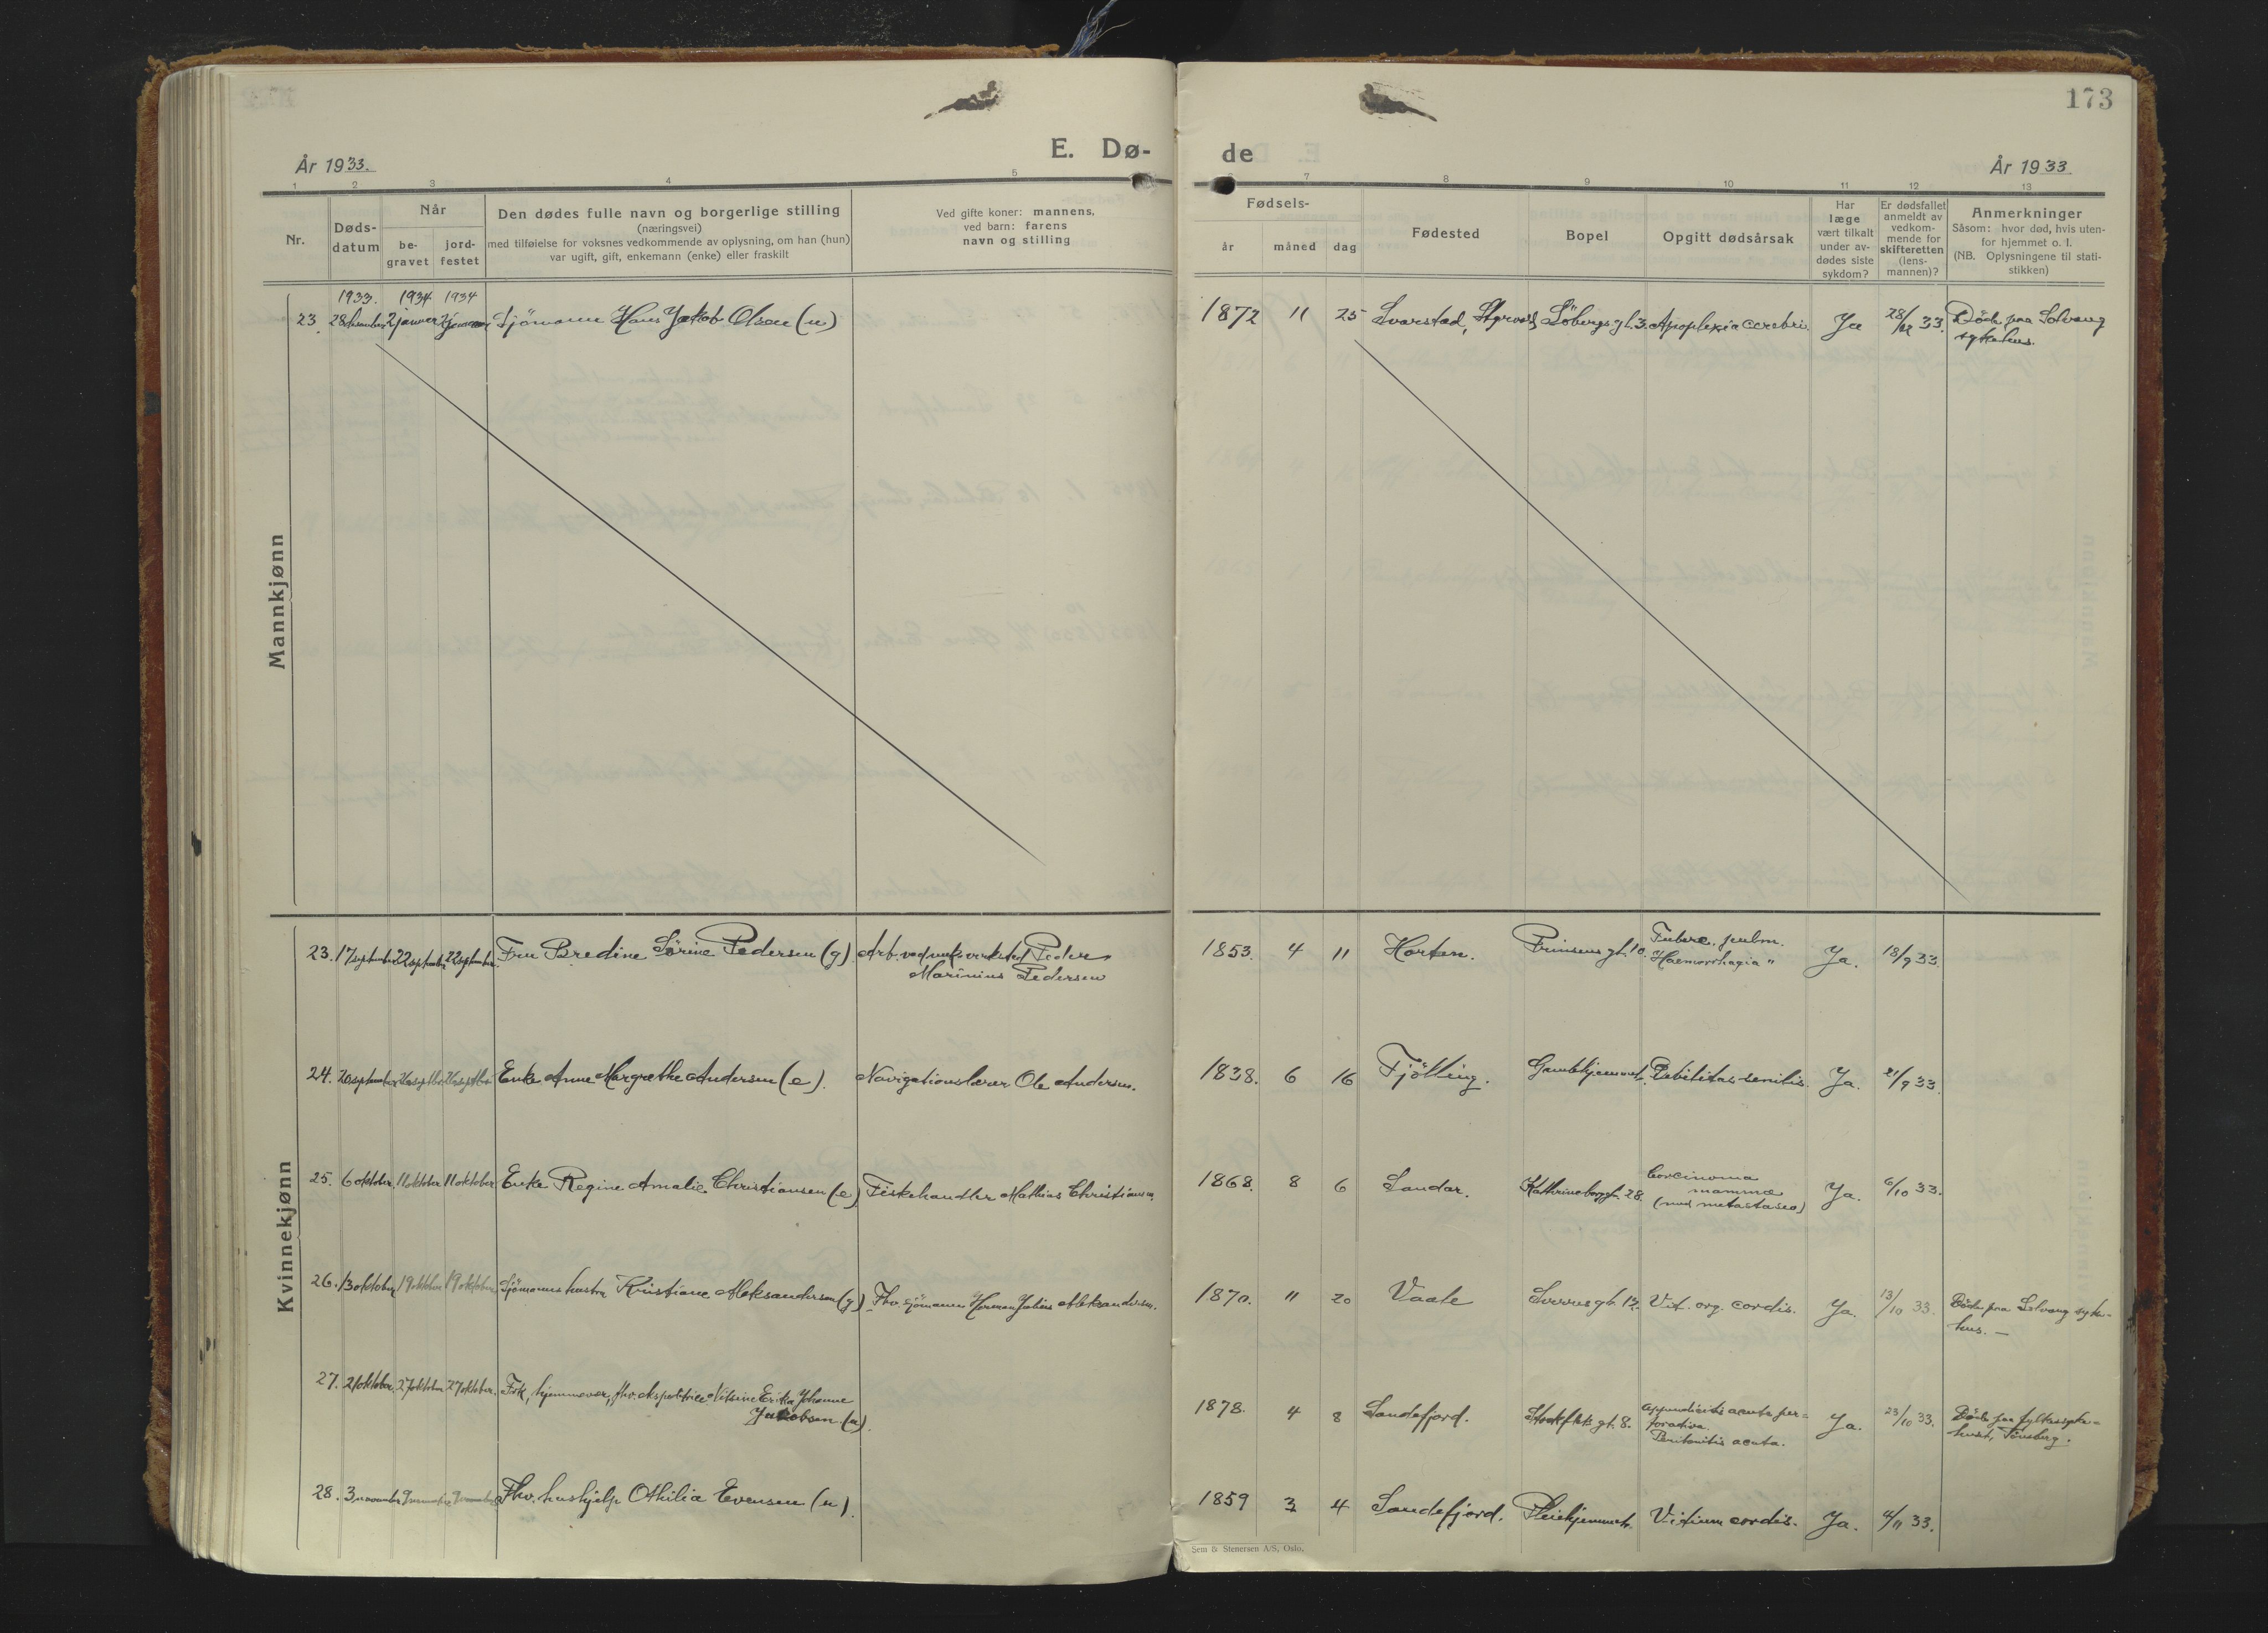 173
E. Dø-
de
År 1933.
År 1933
1 2 3 4 5
7 8 9 10 11 12 13
Nr.
Døds-
datum
Når
be-
gravet
jord-
festet
Den dødes fulle navn og borgerlige stilling
(næringsvei)
med tilføielse for voksnes vedkommende av oplysning, om han (hun)
var ugift, gift, enkemann (enke) eller fraskilt
Ved gifte koner: mannens,
ved barn: farens
navn og stilling
Fødsels-
år måned dag
Fødested
Bopel
Opgitt dødsårsak
Har
læge
vært tilkalt
under av-
dødes siste
sykdom?
Er dødsfallet
anmeldt av
vedkom-
mende for
skifteretten
(lens-
mannen)?
Anmerkninger
Såsom: hvor død, hvis uten-
for hjemmet o. l.
(NB. Oplysningene til stati-
stikken)
Mannkjønn
1933. 1934 1934
23. 28 desember 2 januar 2 januar Sjömann Hans Jakob Olsen (u) 1872 11 25 Svarstad, Söbergs gt. 3. Apoplexia cerebri. Ja 28/12 33. Döde paa Solvang
sykehus.
Kvinnekjønn
23. 17 september 22 september 22 september Fru Bredine Sörine Pedersen (g) Arb. ved mek. verksted Peder
Marinius Pedersen
1853. 4 11 Horten. Prinsens gt. 10. Tuberc. pulm.
Haemorrhagia "
Ja. 18/9 33.
24. 20 september 26 septbr 26 septbr Enke Anne Margrethe Andersen (e). Navigationslærer Ole Andersen. 1838. 6 16 Tjölling. Gamlehjemmet. Debilitas senilis. Ja. 21/9 33.
25. 6 oktober 11 oktober 11 oktober Enke Regine Amalie Christiansen (e) Fiskehandler Mathias Christiansen. 1868. 8 6 Sandar. Kathrineborggt. 28. Carcinoma
mammæ
(med metastaser)
Ja. 6/10 33.
26. 13 oktober 19 oktober 19 oktober Sjömanns hustru Kristiane Aleksandersen (g) Fhv. sjömann Herman Julius Aleksandersen. 1870. 11 20 Vaale Sverres gt. 12. Vit. org. cordis. Ja. 13/10 33. Döde paa Solvang syke-
hus. —
27. 21 oktober. 27 oktober 27 oktober. Frk, hjemmevær., fhv. ekspeditrice Nilsine Erika Johanne
Jacobsen (u).
1878. 4 8 Sandefjord. gt. 8. Appendicitis acuta per-
forativa.
Peritonitis acuta.
Ja. 23/10 33. Döde paa fylkessyke-
huset, Tönsberg.
28. 3 november 9 november 9 november Fhv. hushjelp Othilia Evensen (u). 1859 3 4 Sandefjord. Pleiehjemmet. Vitium cordis. Ja. 4/11 33.
Sem & Stenersen A/S, Oslo.